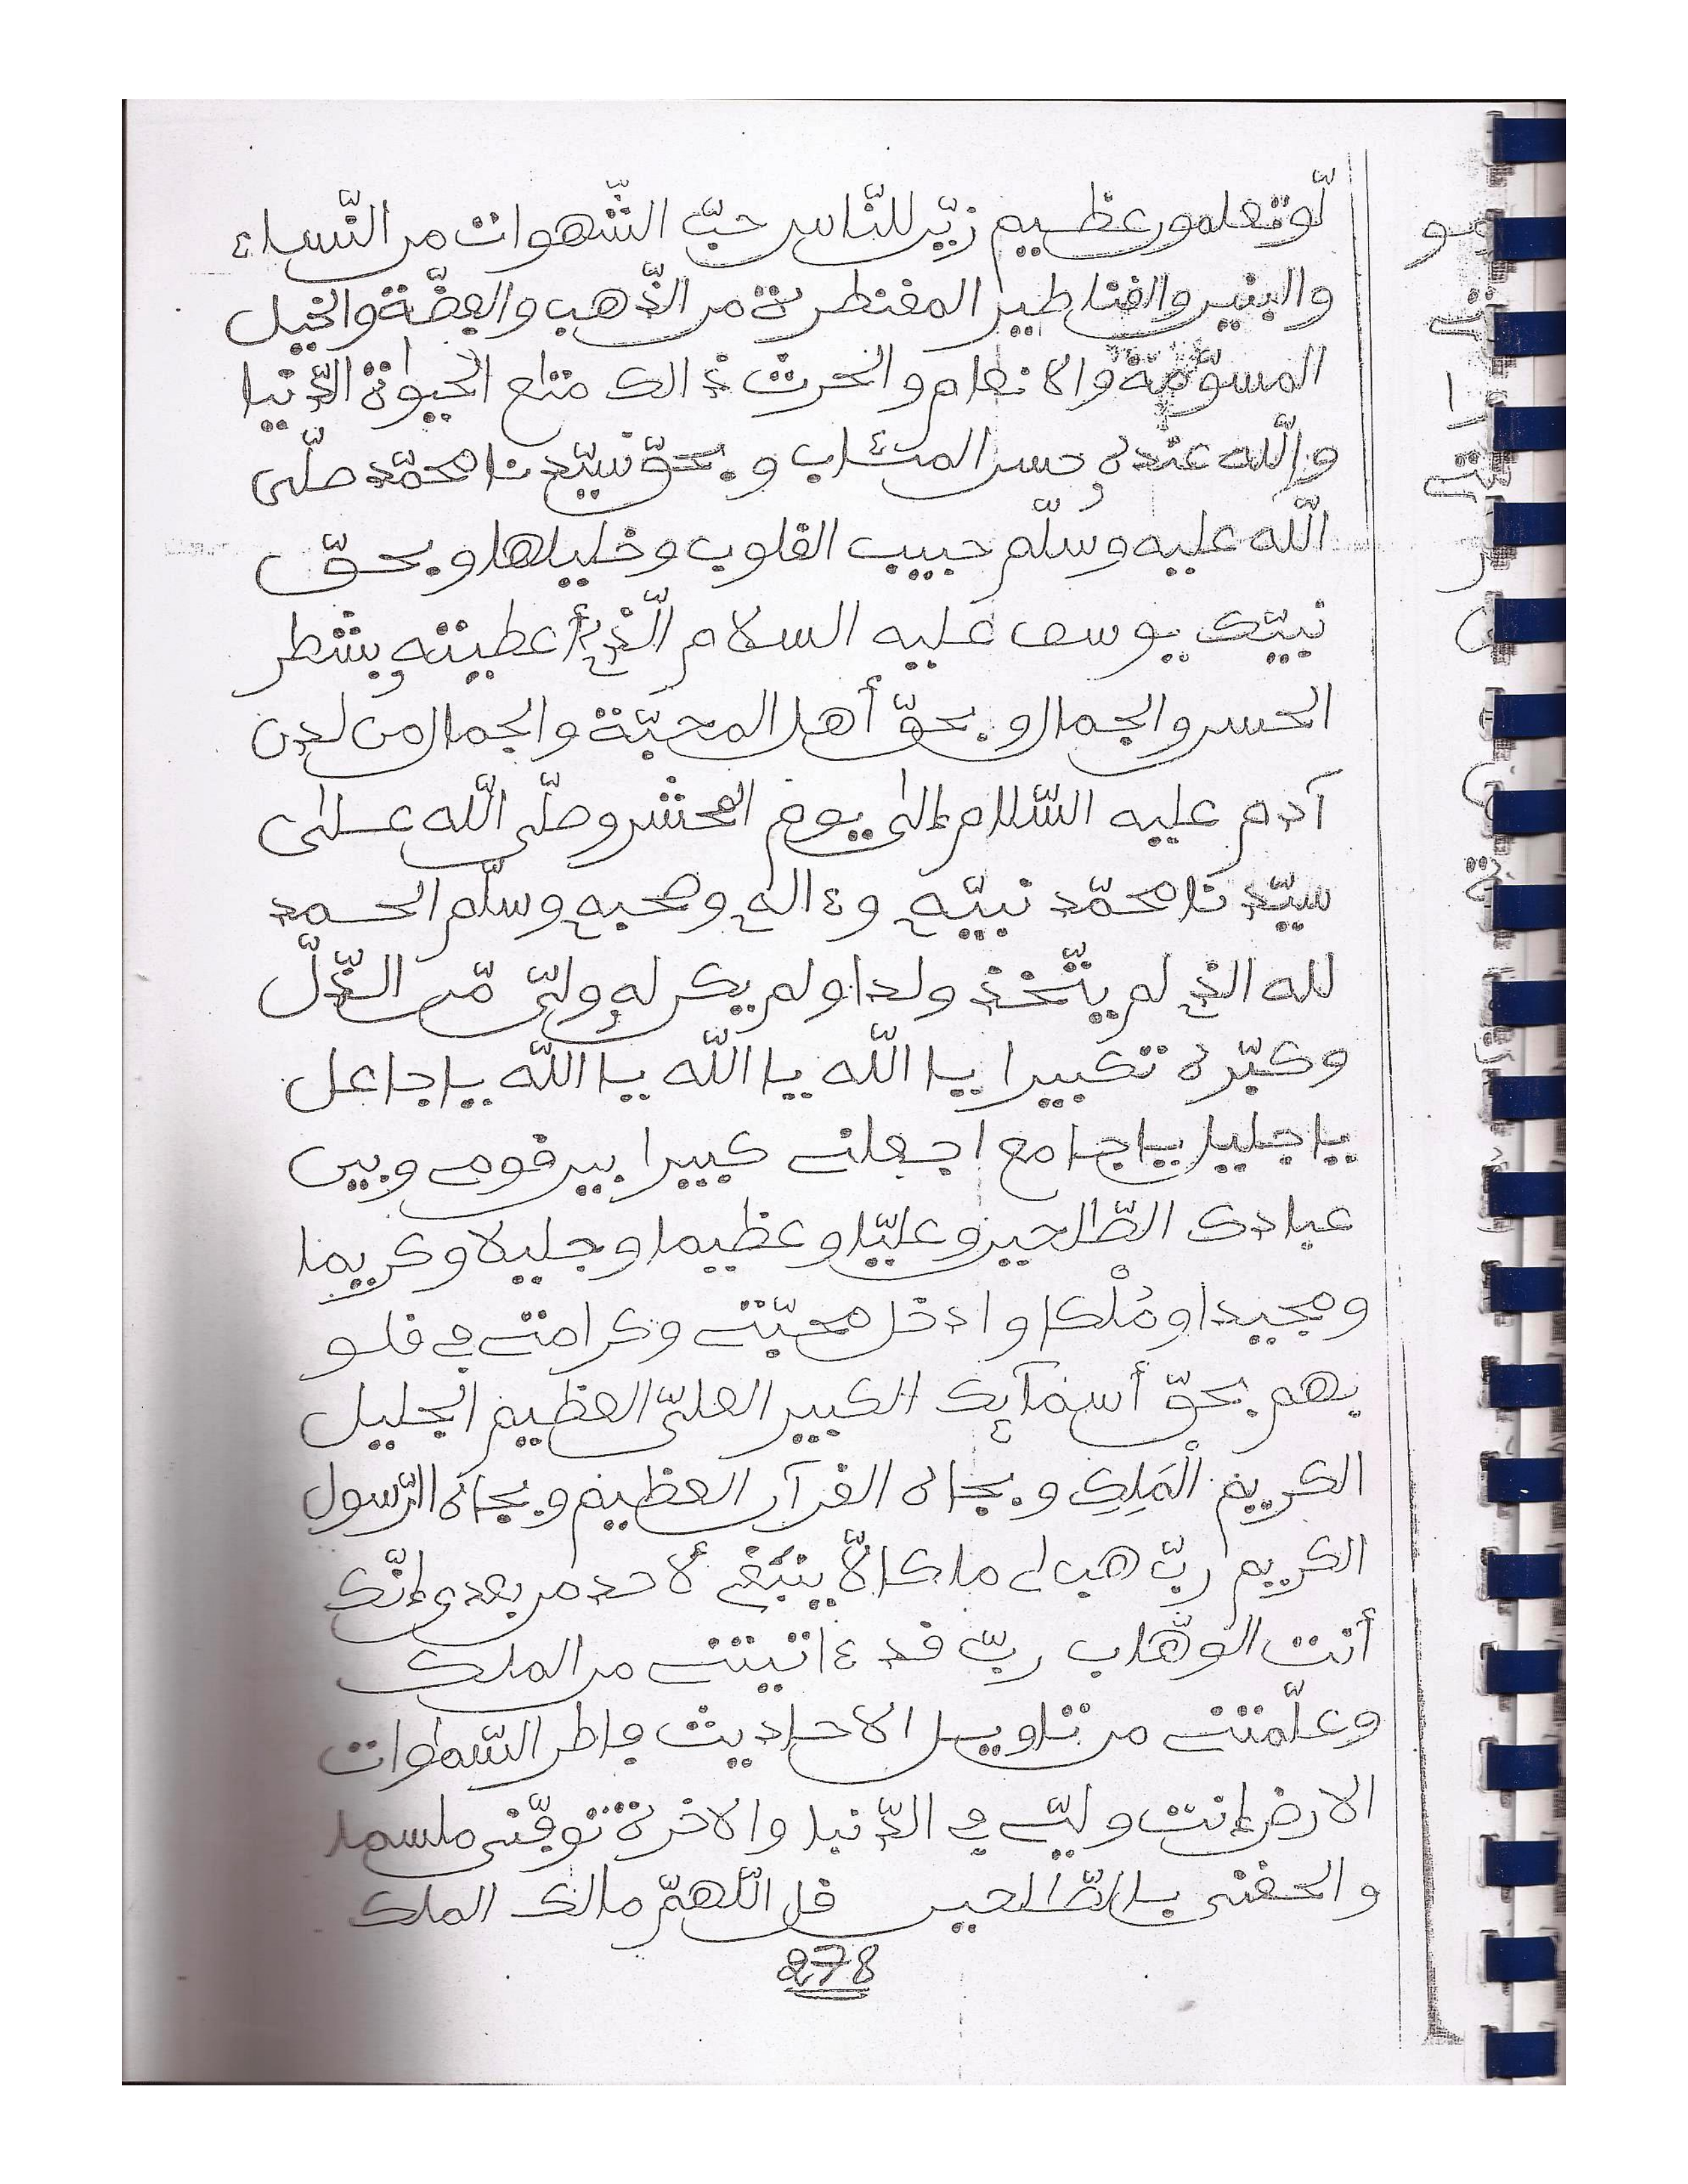 لّو تعلمون عظيم زيّن للنّاس حبّ الشّهوات من النّساء
والبنين والقناطير المقنطرة من الذّهب والفضّة والخيل
المسوّمة والانعام والحرث ذالك متاع الحيوٰة الدّنيا
والله عنده حسن المئاب وبحقّ سيّدنا محمّد صلّى
الله عليه وسلّم حبيب القلوب وخليلها وبحقّ
نبيّك يوسف عليه السلام الّذي أعطيته بشطر
الحسن والجمال وبحقّ أهل المحبّة والجمال من لدن
آدم عليه السّلام إلى يوم المحشر وصلّى الله على
سيّدنا محمّد نبيّه وءاله وصحبه وسلّم الحمد
لله الذي لم يتّخذ ولدا ولم يكن له وليّ مّن الذّلّ
وكبّره تكبيرا يا الله يا الله يا الله يا جاعل
يا جليل يا جامع اجعلني كبيرا بين قومي وبين
عبادك الصّالحين وعليّا وعظيما وجليلا وكريما
ومجيدا ومُلْكا وادخل محبّتي وكرامتي في قلو
بهم بحقّ أسمآئك الكبير العليّ العظيم الجليل
الكريم الْمَلِكِ وبجاه القرآن العظيم وبجاه الرّسول
الكريم ربّ هب لي ملكا لاّ ينبغي لأحد من بعدي إنّك
أنت الوهّاب ربّ قد ءاتيتني من الملك
وعلّمتني من تاويل الاحاديث فاطر السّمٰوات
الارض انت وليّي في الدّنيا والاخرة توفّني مسلما
والحقني بالصّالحين قل اللّهمّ مالك الملك
278